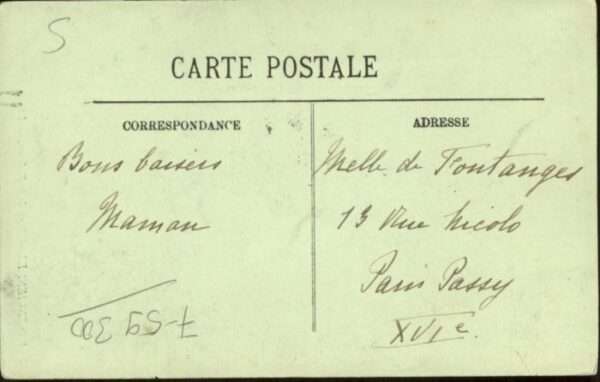 S
CARTE POSTALE
CORRESPONDANCE
ADRESSE
Bons baisers
Maman
Melle de Fontanges
13 Rue Nicolo
Paris Passy
XVIe
7-59 300